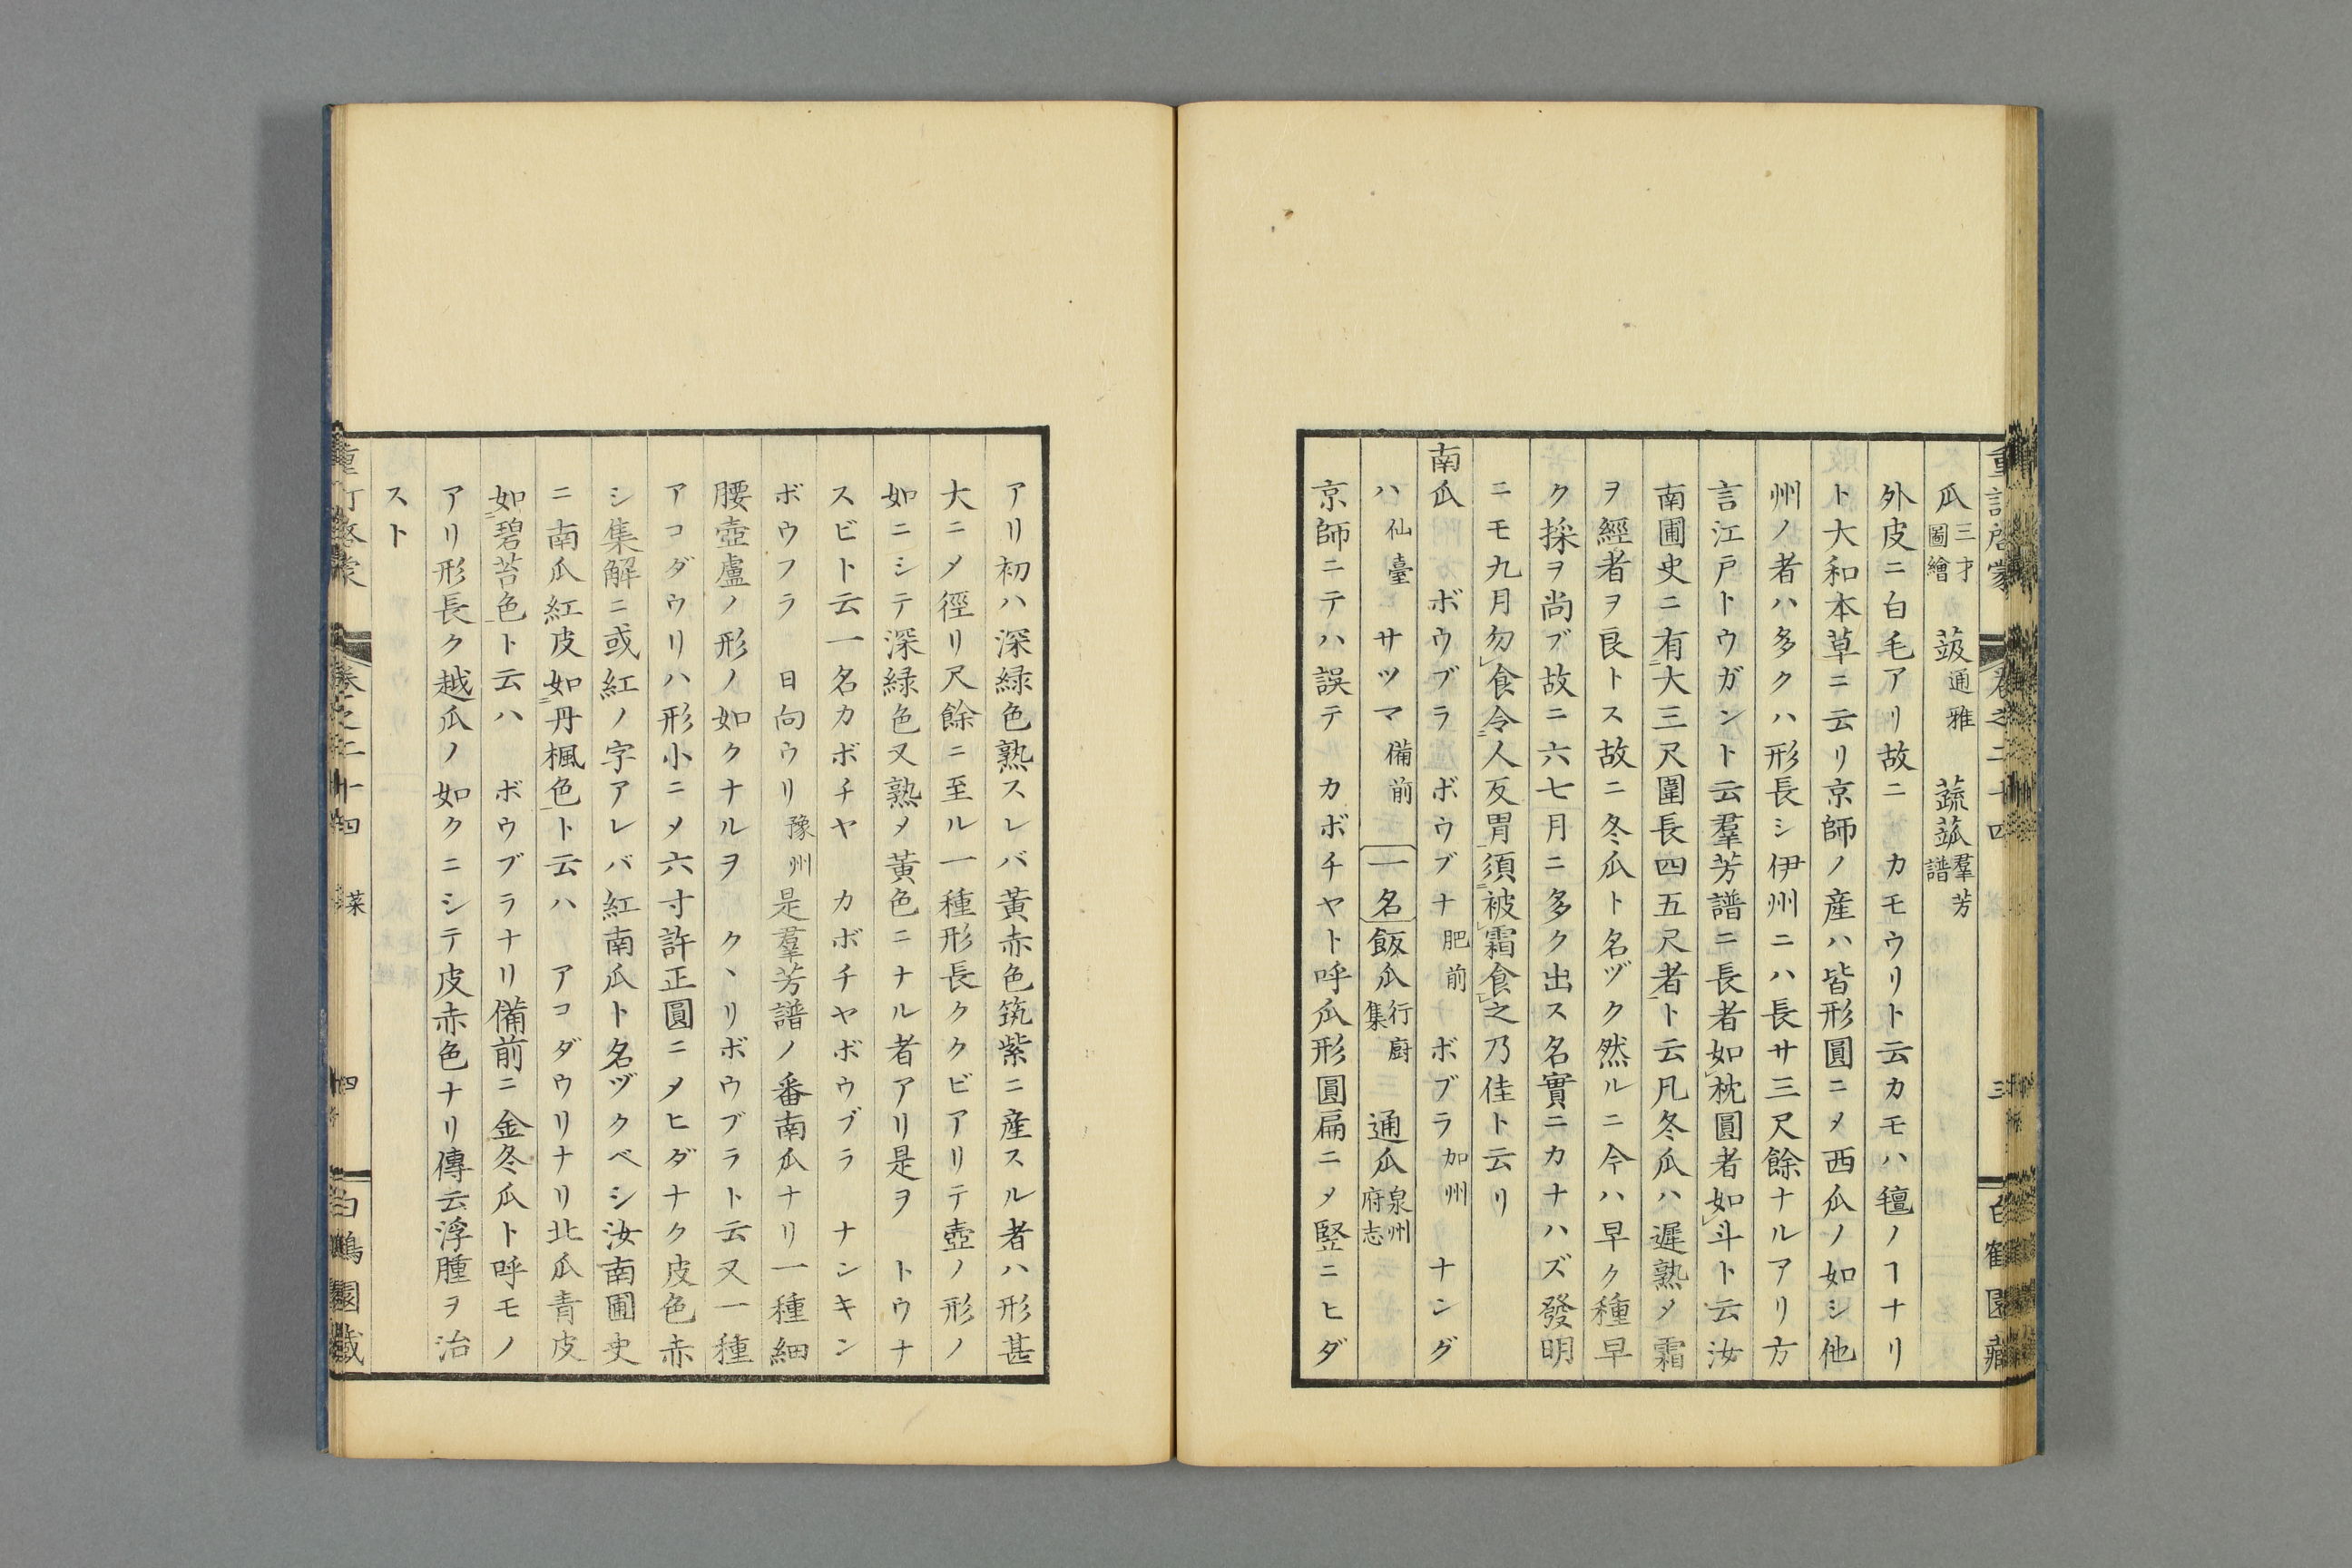 瓜三才圖繪 蓛通雅 蔬蓏羣芳譜
外皮ニ白毛アリ故ニ カモウリト云カモハ氊ノヿナリ
ト大和本草ニ云リ京師ノ産ハ皆形圓ニメ西瓜ノ如シ他
州ノ者ハ多クハ形長シ伊州ニハ長サ三尺餘ナルアリ方
言江戸トウガント云羣芳譜ニ長者如枕圓者如斗ト云汝
南圃史ニ有大三尺圍長四五尺者ト云凡冬瓜ハ遲熟メ霜
ヲ經者ヲ良トス故ニ冬瓜ト名ヅク然ルニ今ハ早ク種早
ク採ヲ尚ブ故ニ六七月ニ多ク出ス名實ニカナハズ發明
ニモ九月勿食令人反胃須被霜食之乃佳ト云リ
南瓜 ボウブラ ボウブナ肥前 ボブラ加州 ナング
ハ仙臺 サツマ備前 一名飯瓜行厨集 通瓜泉州府志
京師ニテハ誤テ カボチヤト呼瓜形圓扁ニメ竪ニヒダ
重訂啓蒙 卷之二十四 三 白鶴園藏
アリ初ハ深緑色熟スレバ黃赤色筑紫ニ産スル者ハ形甚
大ニメ徑リ尺餘ニ至ル一種形長ククビアリテ壺ノ形ノ
如ニシテ深緑色又熟メ黃色ニナル者アリ是ヲ トウナ
スビト云一名カボチヤ カボチヤボウブラ ナンキン
ボウフラ 日向ウリ豫州是羣芳譜ノ番南瓜ナリ一種細
腰壺盧ノ形ノ如クナルヲ クヽリボウブラト云又一種
アコダウリハ形小ニメ六寸許正圓ニメヒダナク皮色赤
シ集解ニ或紅ノ字アレバ紅南瓜ト名ヅクベシ汝南圃史
ニ南瓜紅皮如丹楓色ト云ハ アコダウリナリ北瓜青皮
如碧苔色ト云ハ ボウブラナリ備前ニ金冬瓜ト呼モノ
アリ形長ク越瓜ノ如クニシテ皮赤色ナリ傳云浮腫ヲ治
スト
重訂啓蒙 卷之二十四 菜 四 白鶴園藏